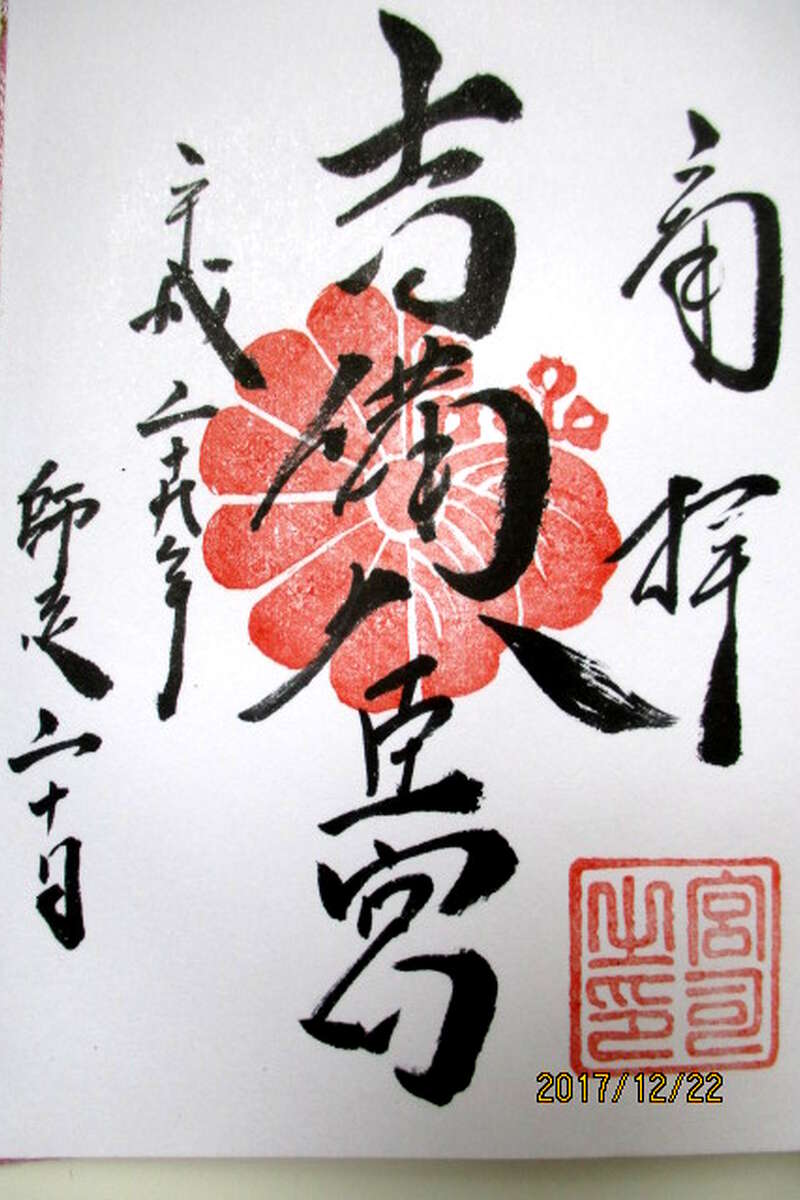 拝
吉備大臣宮
平成二十九年
師走二十日
宮司之印
2017/12/22